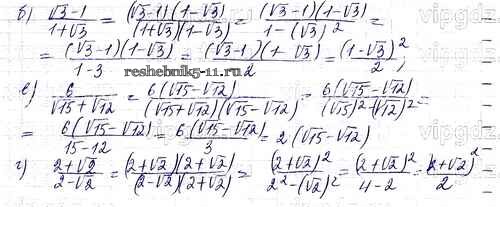 б) (√3-1)/(1+√3) = ((√3-1)(1-√3))/((1+√3)(1-√3)) = ((√3-1)(1-√3))/(1-(√3)²) =
= ((√3-1)(1-√3))/(1-3) = ((√3-1)(1-√3))/2 = (1-√3)²/2 ;
reshebnik5-11.ru
е) 6/(√15+√12) = 6(√15-√12)/((√15+√12)(√15-√12)) = 6(√15-√12)/((√15)²-(√12)²) =
= 6(√15-√12)/(15-12) = 6(√15-√12)/3 = 2(√15-√12)
г) (2+√2)/(2-√2) = ((2+√2)(2+√2))/((2-√2)(2+√2)) = (2+√2)²/(2²-(√2)²) = (2+√2)²/(4-2) = (2+√2)²/2
vipgdz
vipgdz
vipgdz